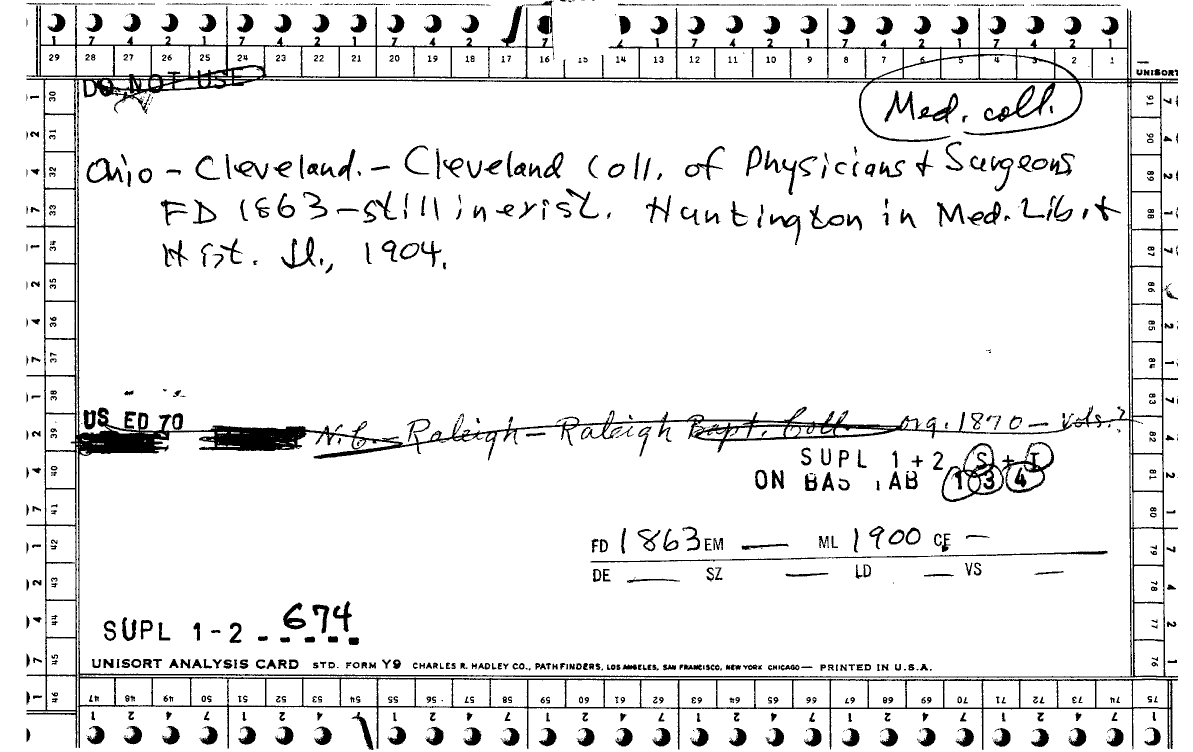 1 7 4 2 1 7 4 2 1 7 4 2 7 16 7 4 2 1 7 4 2 1 7 4 2 1
29 28 27 26 25 24 23 22 21 20 19 18 17 16 15 14 13 12 11 10 9 8 7 6 5 4 3 2 1
UNISORT
DO NOT USE
Med. coll.
Ohio - Cleveland. - Cleveland Coll. of Physicians & Surgeons
FD 1863 - still in exist. Huntington in Med. Lib. &
Hist. Jl., 1904.
US ED 70
N.C. - Raleigh - Raleigh Bapt. Coll. - org. 1870 - Vols.?
SUPL 1 + 2 S + I
ON BAS TAB 1 3 4
FD 1863 EM — ML 1900 CE —
DE — SZ — LD — VS —
SUPL 1-2 - 674
UNISORT ANALYSIS CARD STD. FORM Y9 CHARLES R. HADLEY CO., PATHFINDERS, LOS ANGELES, SAN FRANCISCO, NEW YORK CHICAGO — PRINTED IN U.S.A.
47 48 49 50 51 52 53 54 55 56 57 58 59 60 61 62 63 64 65 66 67 68 69 70 71 72 73 74 75